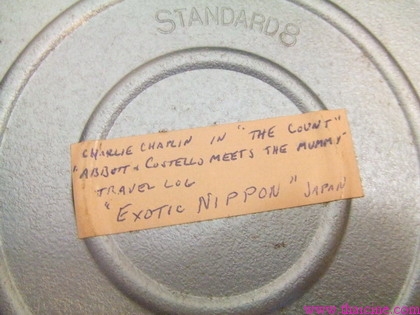 STANDARD 8
CHARLIE CHAPLIN IN "THE COUNT"
"ABBOTT & COSTELLO MEETS THE MUMMY"
TRAVEL LOG
"EXOTIC NIPPON" JAPAN